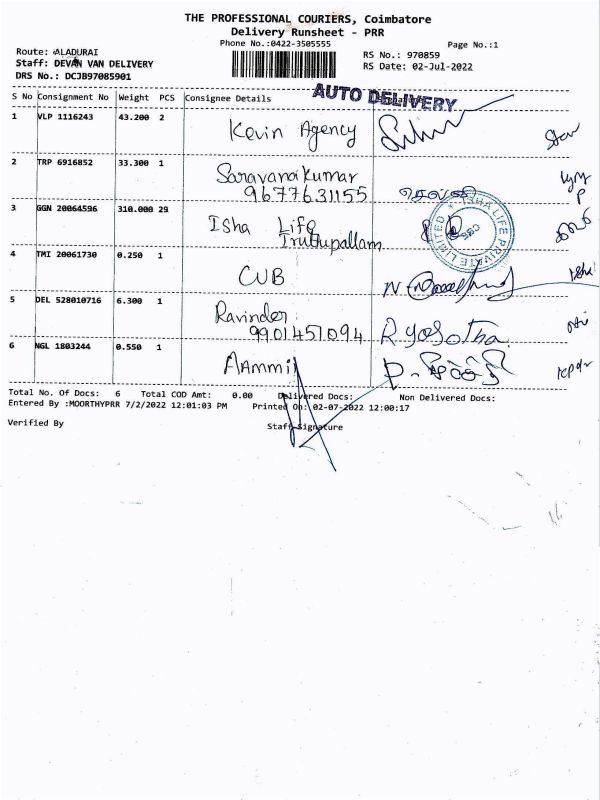 THE PROFESSIONAL COURIERS, Coimbatore
Delivery Runsheet - PRR
Phone No.:0422-3505555
Page No.:1
Route: ALADURAI
RS No.: 970859
Staff: DEVAN VAN DELIVERY
RS Date: 02-Jul-2022
DRS No.: DCJB97085901
S No Consignment No Weight PCS Consignee Details
AUTO DELIVERY
1 VLP 1116243 43.200 2
Kevin Agency
2 TRP 6916852 33.300 1
Saravanakumar
9677631155
3 GGN 20064596 310.000 29
Isha Life
Iruttupallam
ISHA LIFE PRIVATE LIMITED
4 TMI 20061730 0.250 1
CUB
5 DEL 528010716 6.300 1
Ravinder
9901451094 R. Yasotha.
6 NGL 1803244 0.550 1
AAmmii
Total No. Of Docs: 6 Total COD Amt: 0.00 Delivered Docs: Non Delivered Docs:
Entered By :MOORTHYPRR 7/2/2022 12:01:03 PM Printed On: 02-07-2022 12:00:17
Verified By Staff Signature